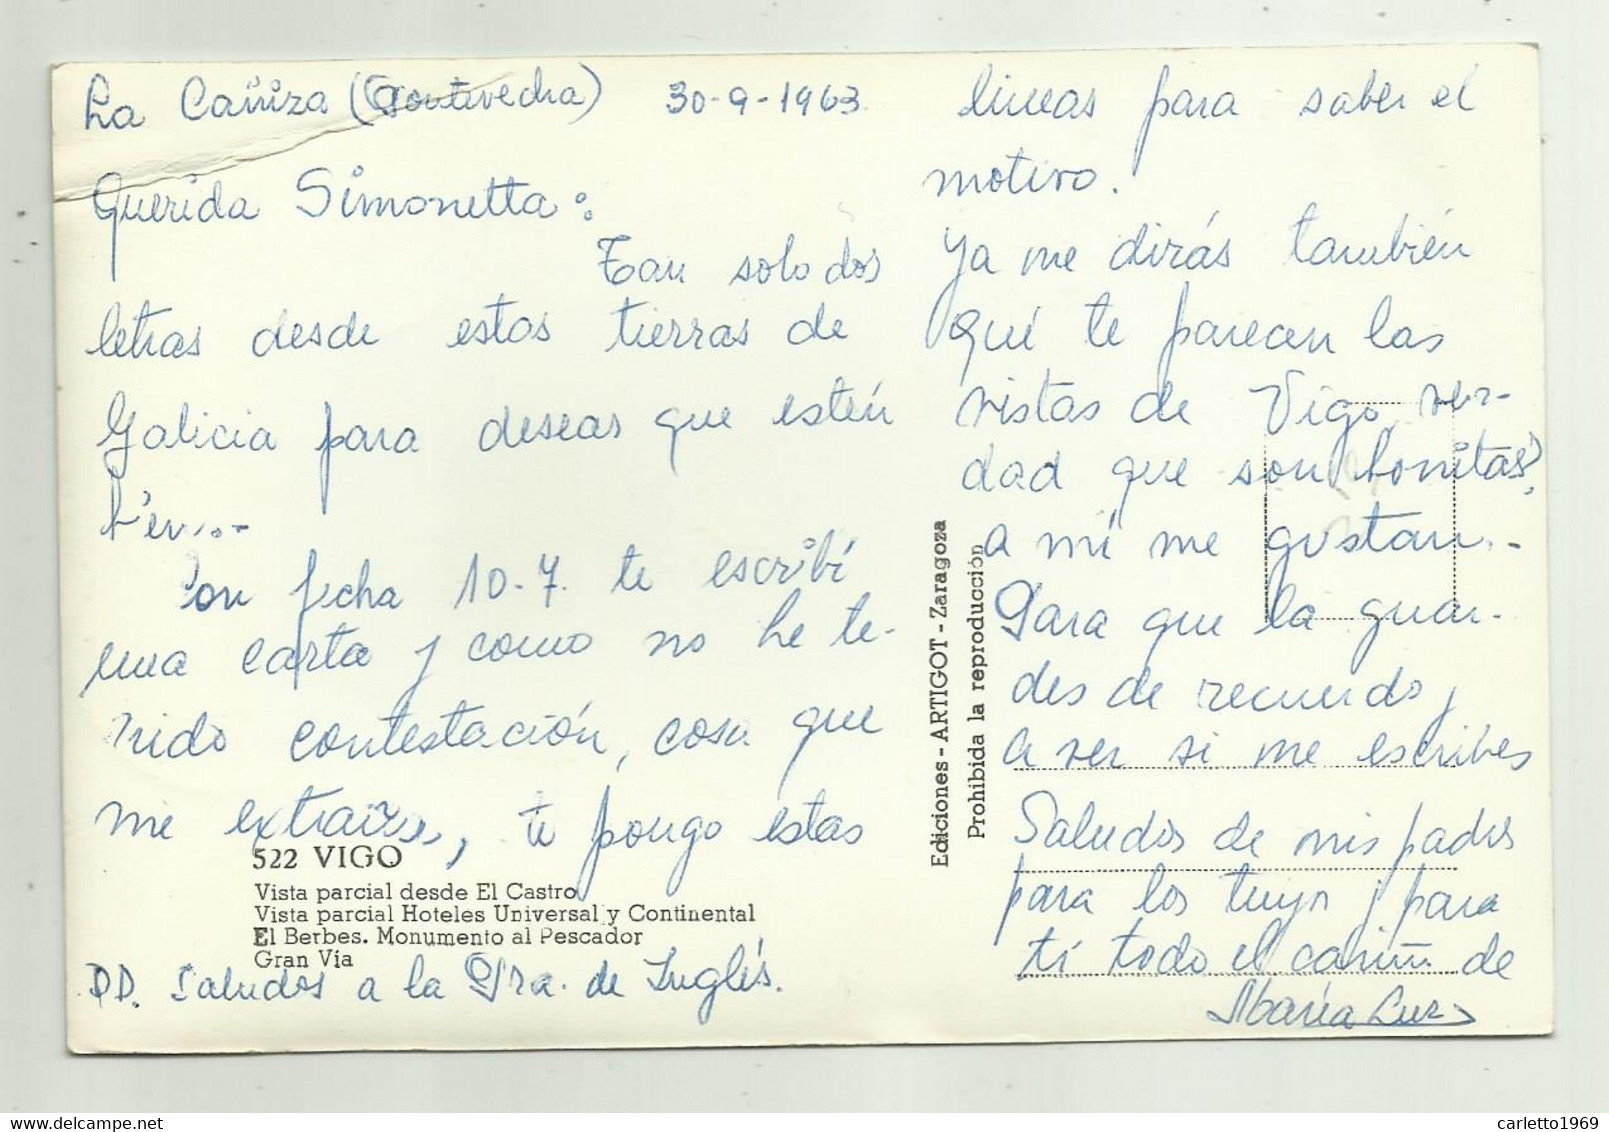 La Cañiza (Pontevedra) 30-9-1963
Querida Simonetta:
Tan solo dos
letras desde estas tierras de
Galicia para desear que estén
bien.-
Con fecha 10-7. te escribí
una carta y como no he te-
nido contestación, cosa que
me extraña, te pongo estas
lineas para saber el
motivo.
Ya me dirás también
qué te parecen las
vistas de Vigo, ver-
dad que son bonitas?,
a mí me gustan.-
Para que la guar-
des de recuerdo y
a ver si me escribes
Saludos de mis padres
para los tuyos y para
tí todo el cariño de
Maria Luz
PD. Saludos a la Pra. de Inglés.
522 VIGO
Vista parcial desde El Castro
Vista parcial Hoteles Universal y Continental
El Berbes. Monumento al Pescador
Gran Vía
Ediciones - ARTIGOT - Zaragoza
Prohibida la reproducción
carletto1969